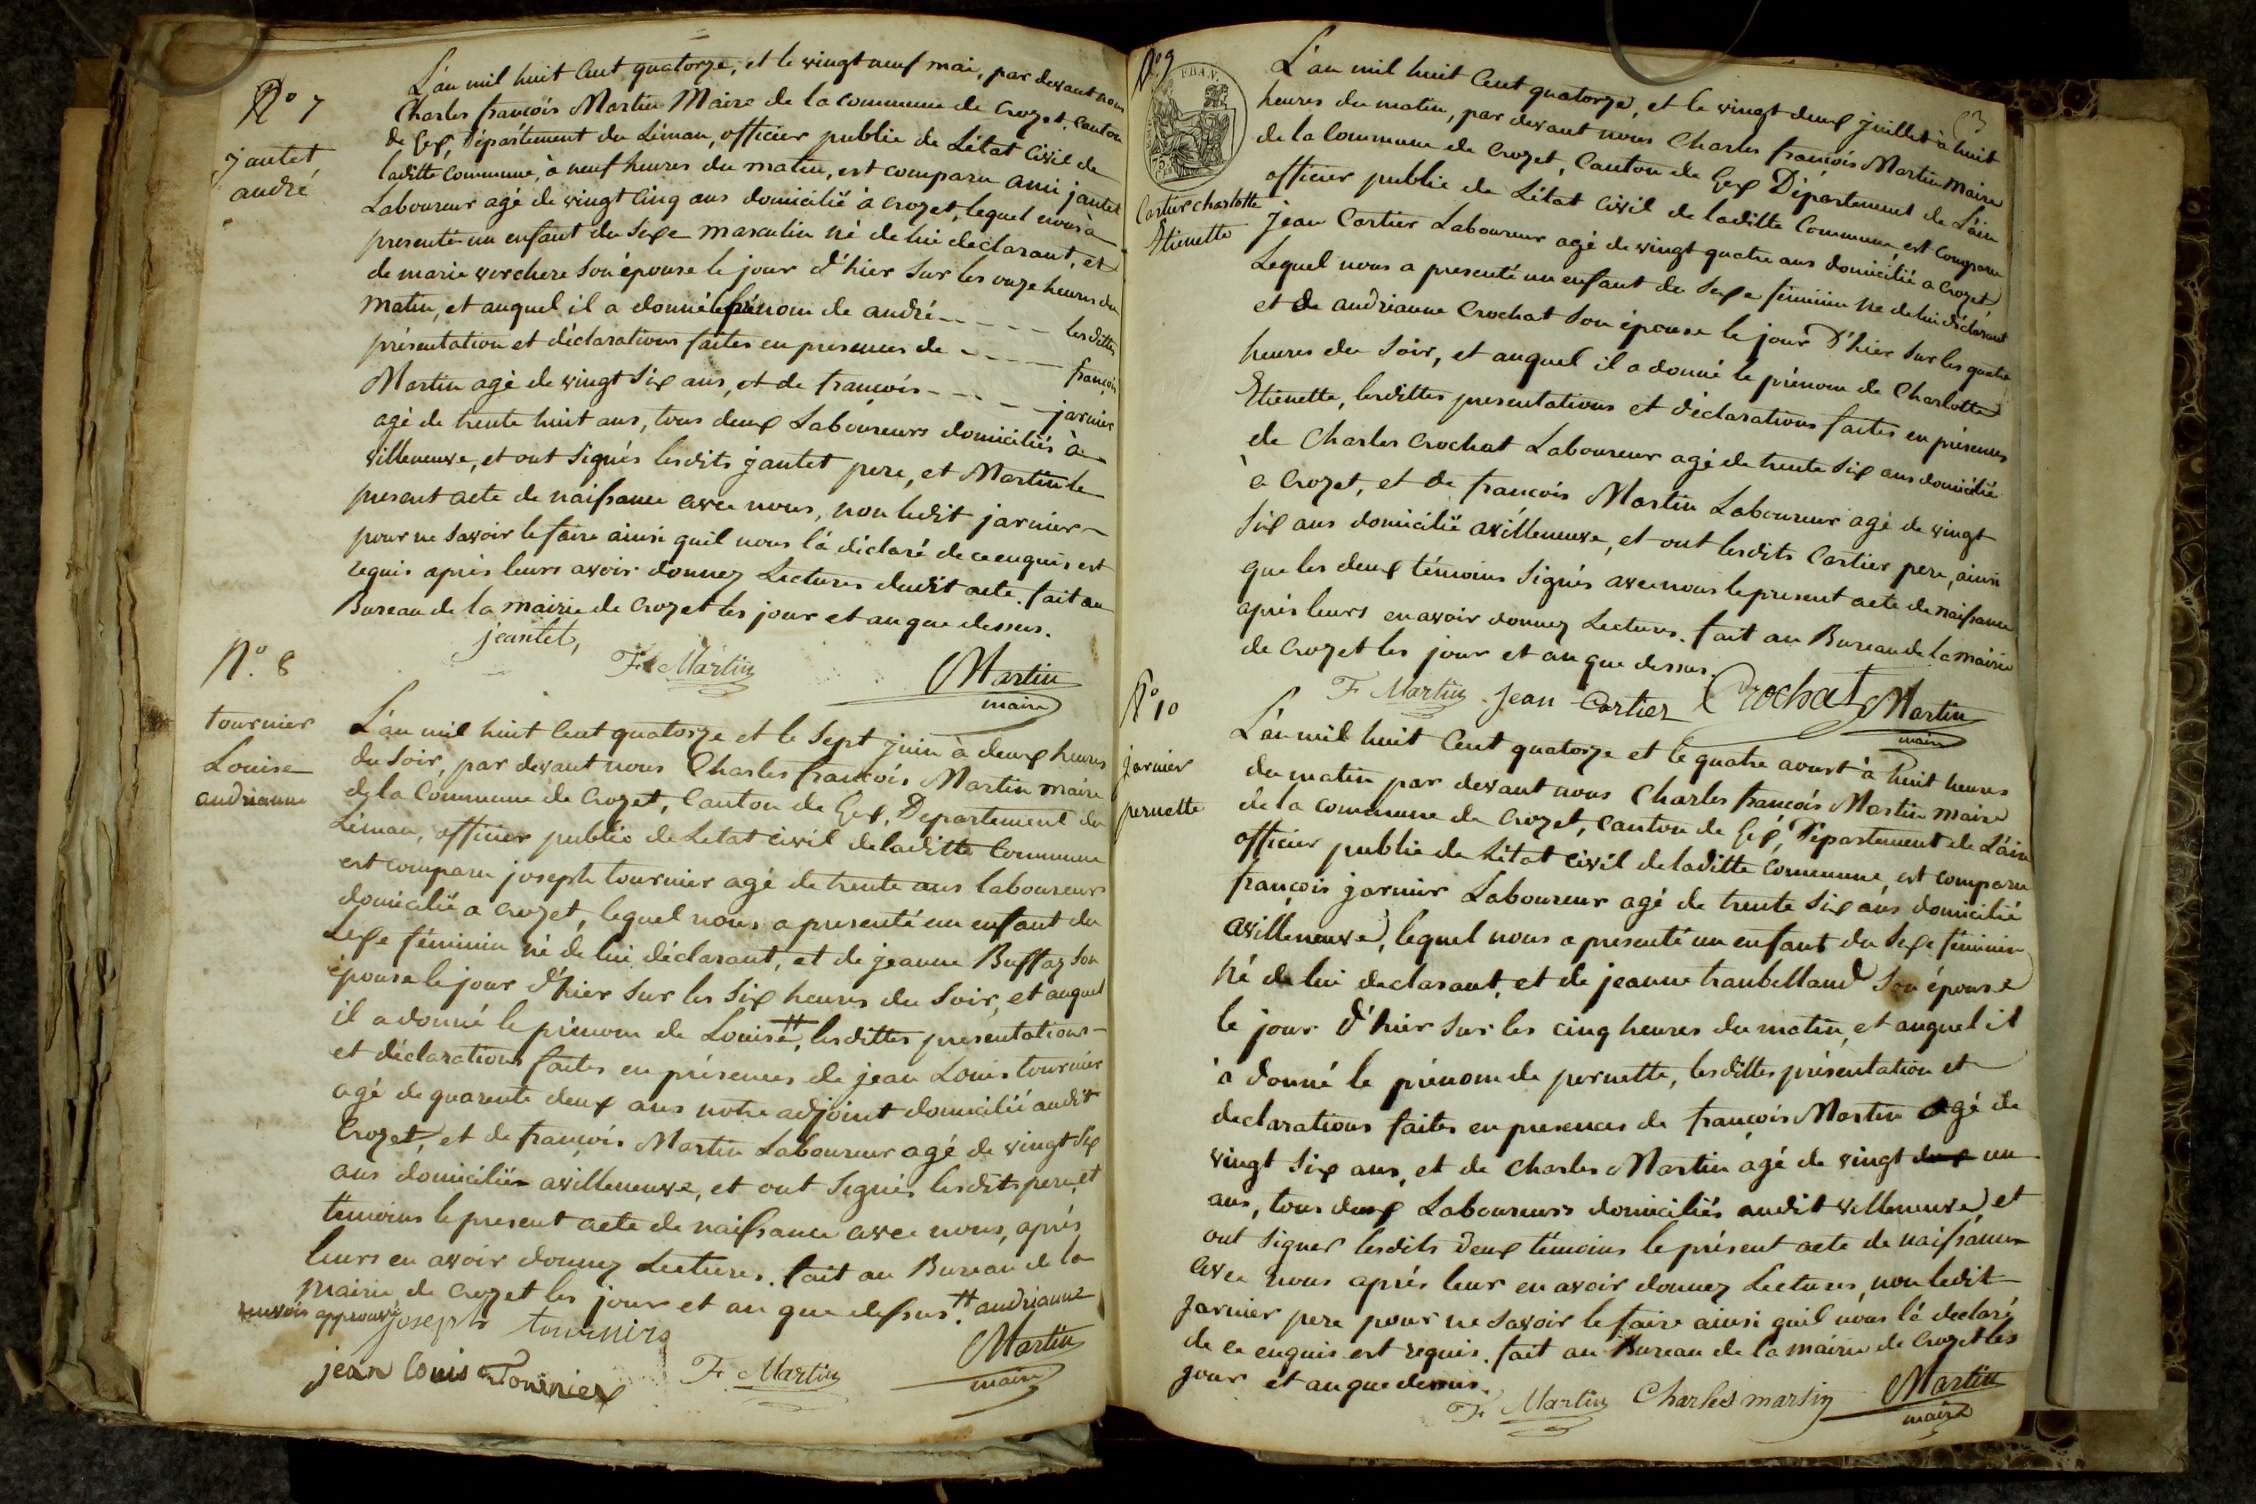 N° 7
jantet
andré
L'an mil huit Cent quatorze, et le vingt neuf mai, par devant nous
Charles françois Martin Maire de la commune de Crozet, Canton
de Gex, Département du Léman, officier public de L'état Civil de
laditte Commune, à neuf heures du matin, est comparu ami jantet
Laboureur agé de vingt Cinq ans domicilié à Crozet, lequel nous à
presenté un enfant du Sexe masculin né de lui declarant, et
de marie verchere Son épouse le jour d'hier Sur les onze heures du
matin, et auquel il a donné le prénom de andré - - - - - lesdittes
présentation et déclarations faites en presences de - - - - - françois
Martin agé de vingt Six ans, et de françois - - - - - jarnier
agé de trente huit ans, tous deux Laboureurs domiciliés à
villeneuve, et ont Signés lesdits jantet pere, et Martin le
present acte de naissance avec nous, non ledit jarnier
pour ne Savoir le faire ainsi quil nous l'à déclaré de ce enquis est
requis après leurs avoir donnez Lectures dudit acte. fait au
Bureau de la mairie de Crozet les jour et an que dessus.
jeantet,
F Martin
Martin
maire
N°. 8
tournier
Louise
andrianne
L'an mil huit Cent quatorze et le Sept juin à deux heures
du Soir, par devant nous Charles françois Martin maire
de la Commune de Crozet, Canton de Gex, Département du
Léman, officier public de Letat Civil de laditte Commune
est comparu joseph tournier agé de trente ans laboureur
domicilié a Crozet, lequel nous a presenté un enfant du
Sexe féminin né de lui déclarant, et de jeanne Buffaz Son
épouse le jour d'hier Sur les Six heures du Soir, et auquel
il a donné le prénom de Louise ++, lesdittes presentations
et déclarations faites en présences de jean Louis tournier
agé de quarente deux ans notre adjoint domicilié audit
Crozet, et de françois Martin Laboureur agé de vingt Six
ans domiciliés avilleneuve, et ont Signés lesdits pere, et
témoins le present acte de naissance avec nous, après
leurs en avoir donnez Lectures. fait au Bureau de la
mairie de Crozet les jour et an que dessus. ++ andrianne
renvois approuvé
joseph tournier
jean louis Tournier
F Martin
Martin
maire
N° 9
FRAN.
3
Cartier charlotte
Etienette
L'an mil huit Cent quatorze, et le vingt deux juillet à huit
heures du matin, par devant nous Charles françois Martin Maire
de la Commune de Crozet, Canton de Gex Département de L'ain
officier public de L'état Civil de laditte Commune, est Comparu
jean Cartier Laboureur agé de vingt quatre ans domicilié a Crozet,
Lequel nous a presenté un enfant du Sexe féminin né de lui déclarant
et de andrianne Crochat Son épouse le jour d'hier Sur les quatre
heures du Soir, et auquel il a donné le prénom de Charlotte
Etienette, lesdittes presentations et déclarations faites en présences
de Charles Crochat Laboureur agé de trente Six ans domicilié
à Crozet, et de françois Martin Laboureur agé de vingt
Six ans domicilié avilleneuve, et ont lesdits Cartier pere, ainsi
que les deux témoins Signés avec nous le present acte de naissance
après leurs en avoir donnez Lectures. fait au Bureau de la mairie
de Crozet les jour et an que dessus.
F Martin Jean Cartier Crochat Martin
maire
N° 10
jarnier
pernette
L'an mil huit Cent quatorze et le quatre aoust à huit heures
du matin par devant nous Charles françois Martin maire
de la commune de Crozet, Canton de Gex, Département de L'ain
officier public de L'état Civil de laditte Commune, est comparu
françois jarnier Laboureur agé de trente Six ans domicilié
avilleneuve, lequel nous a presenté un enfant du Sexe féminin
Né de lui declarant, et de jeanne traubelland Son épouse
le jour d'hier Sur les cinq heures du matin, et auquel il
à donné le prénom de pernette, lesdittes présentation et
declarations faites en presences de françois Martin agé de
vingt Six ans, et de Charles Martin agé de vingt deux un
ans, tous deux Laboureurs domiciliés audit villeneuve, et
ont Signer lesdits deux témoins le présent acte de naissance
avec nous aprés leur en avoir donnez Lectures, non ledit
jarnier pere pour ne Savoir le faire ainsi quil nous l'à declaré
de ce enquis est requis. fait au Bureau de la mairie de Crozet les
jour et an que dessus.
F Martin Charles martin Martin
maire